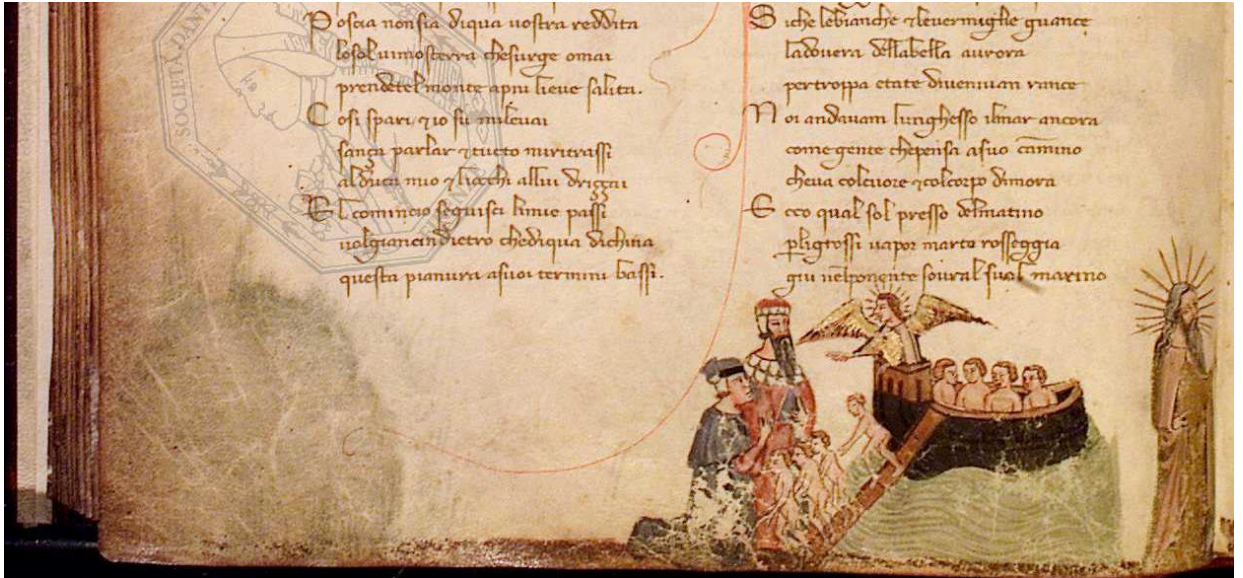 Poscia non sia diqua uostra reddita
losol uimosterra chesurge omai
prendetel monte apiu lieue salita.
Cosi spari ⁊ io su mileuai
sança parlar ⁊ tucto miritrassi
al duca mio ⁊ liocchi allui driççai
El comincio seguisci limie passi
uolgiancindietro chediqua dichina
questa pianura asuoi termini bassi.
Siche lebianche ⁊ leuermiglie guance
ladouera dellabella aurora
pertroppa etate diueniuan rance
Noi andauam lunghesso ilmar ancora
come gente chepensa asuo camino
cheua colcuore ⁊ colcorpo dimora
Ecco qual sol presso delmatino
pligrossi uapor marte rosseggia
giu nelponente soural suol marino
SOCIETÀ DANT